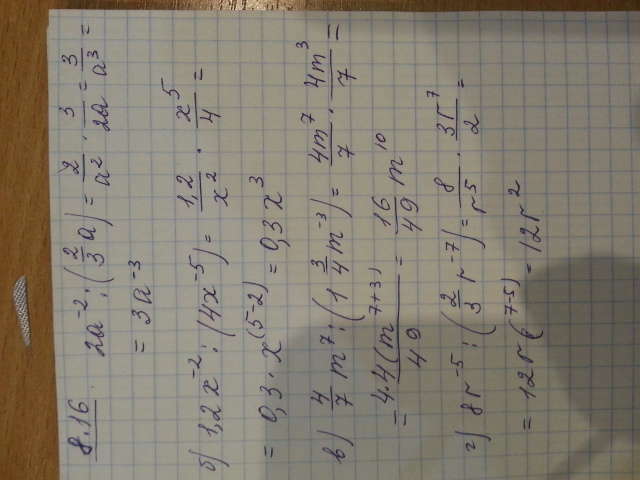 8.16. 2a⁻² : (2/3 a) = 2/a² · 3/2a = 3/a³ =
= 3a⁻³
б) 1,2x⁻² : (4x⁻⁵) = 1,2/x² · x⁵/4 =
= 0,3 · x⁽⁵⁻²⁾ = 0,3x³
в) 4/7 m⁷ : (1 3/4 m⁻³) = 4m⁷/7 · 4m³/7 =
= 4·4(m⁷⁺³)/49 = 16/49 m¹⁰
г) 8r⁻⁵ : (2/3 r⁻⁷) = 8/r⁵ · 3r⁷/2 =
= 12r⁽⁷⁻⁵⁾ = 12r²